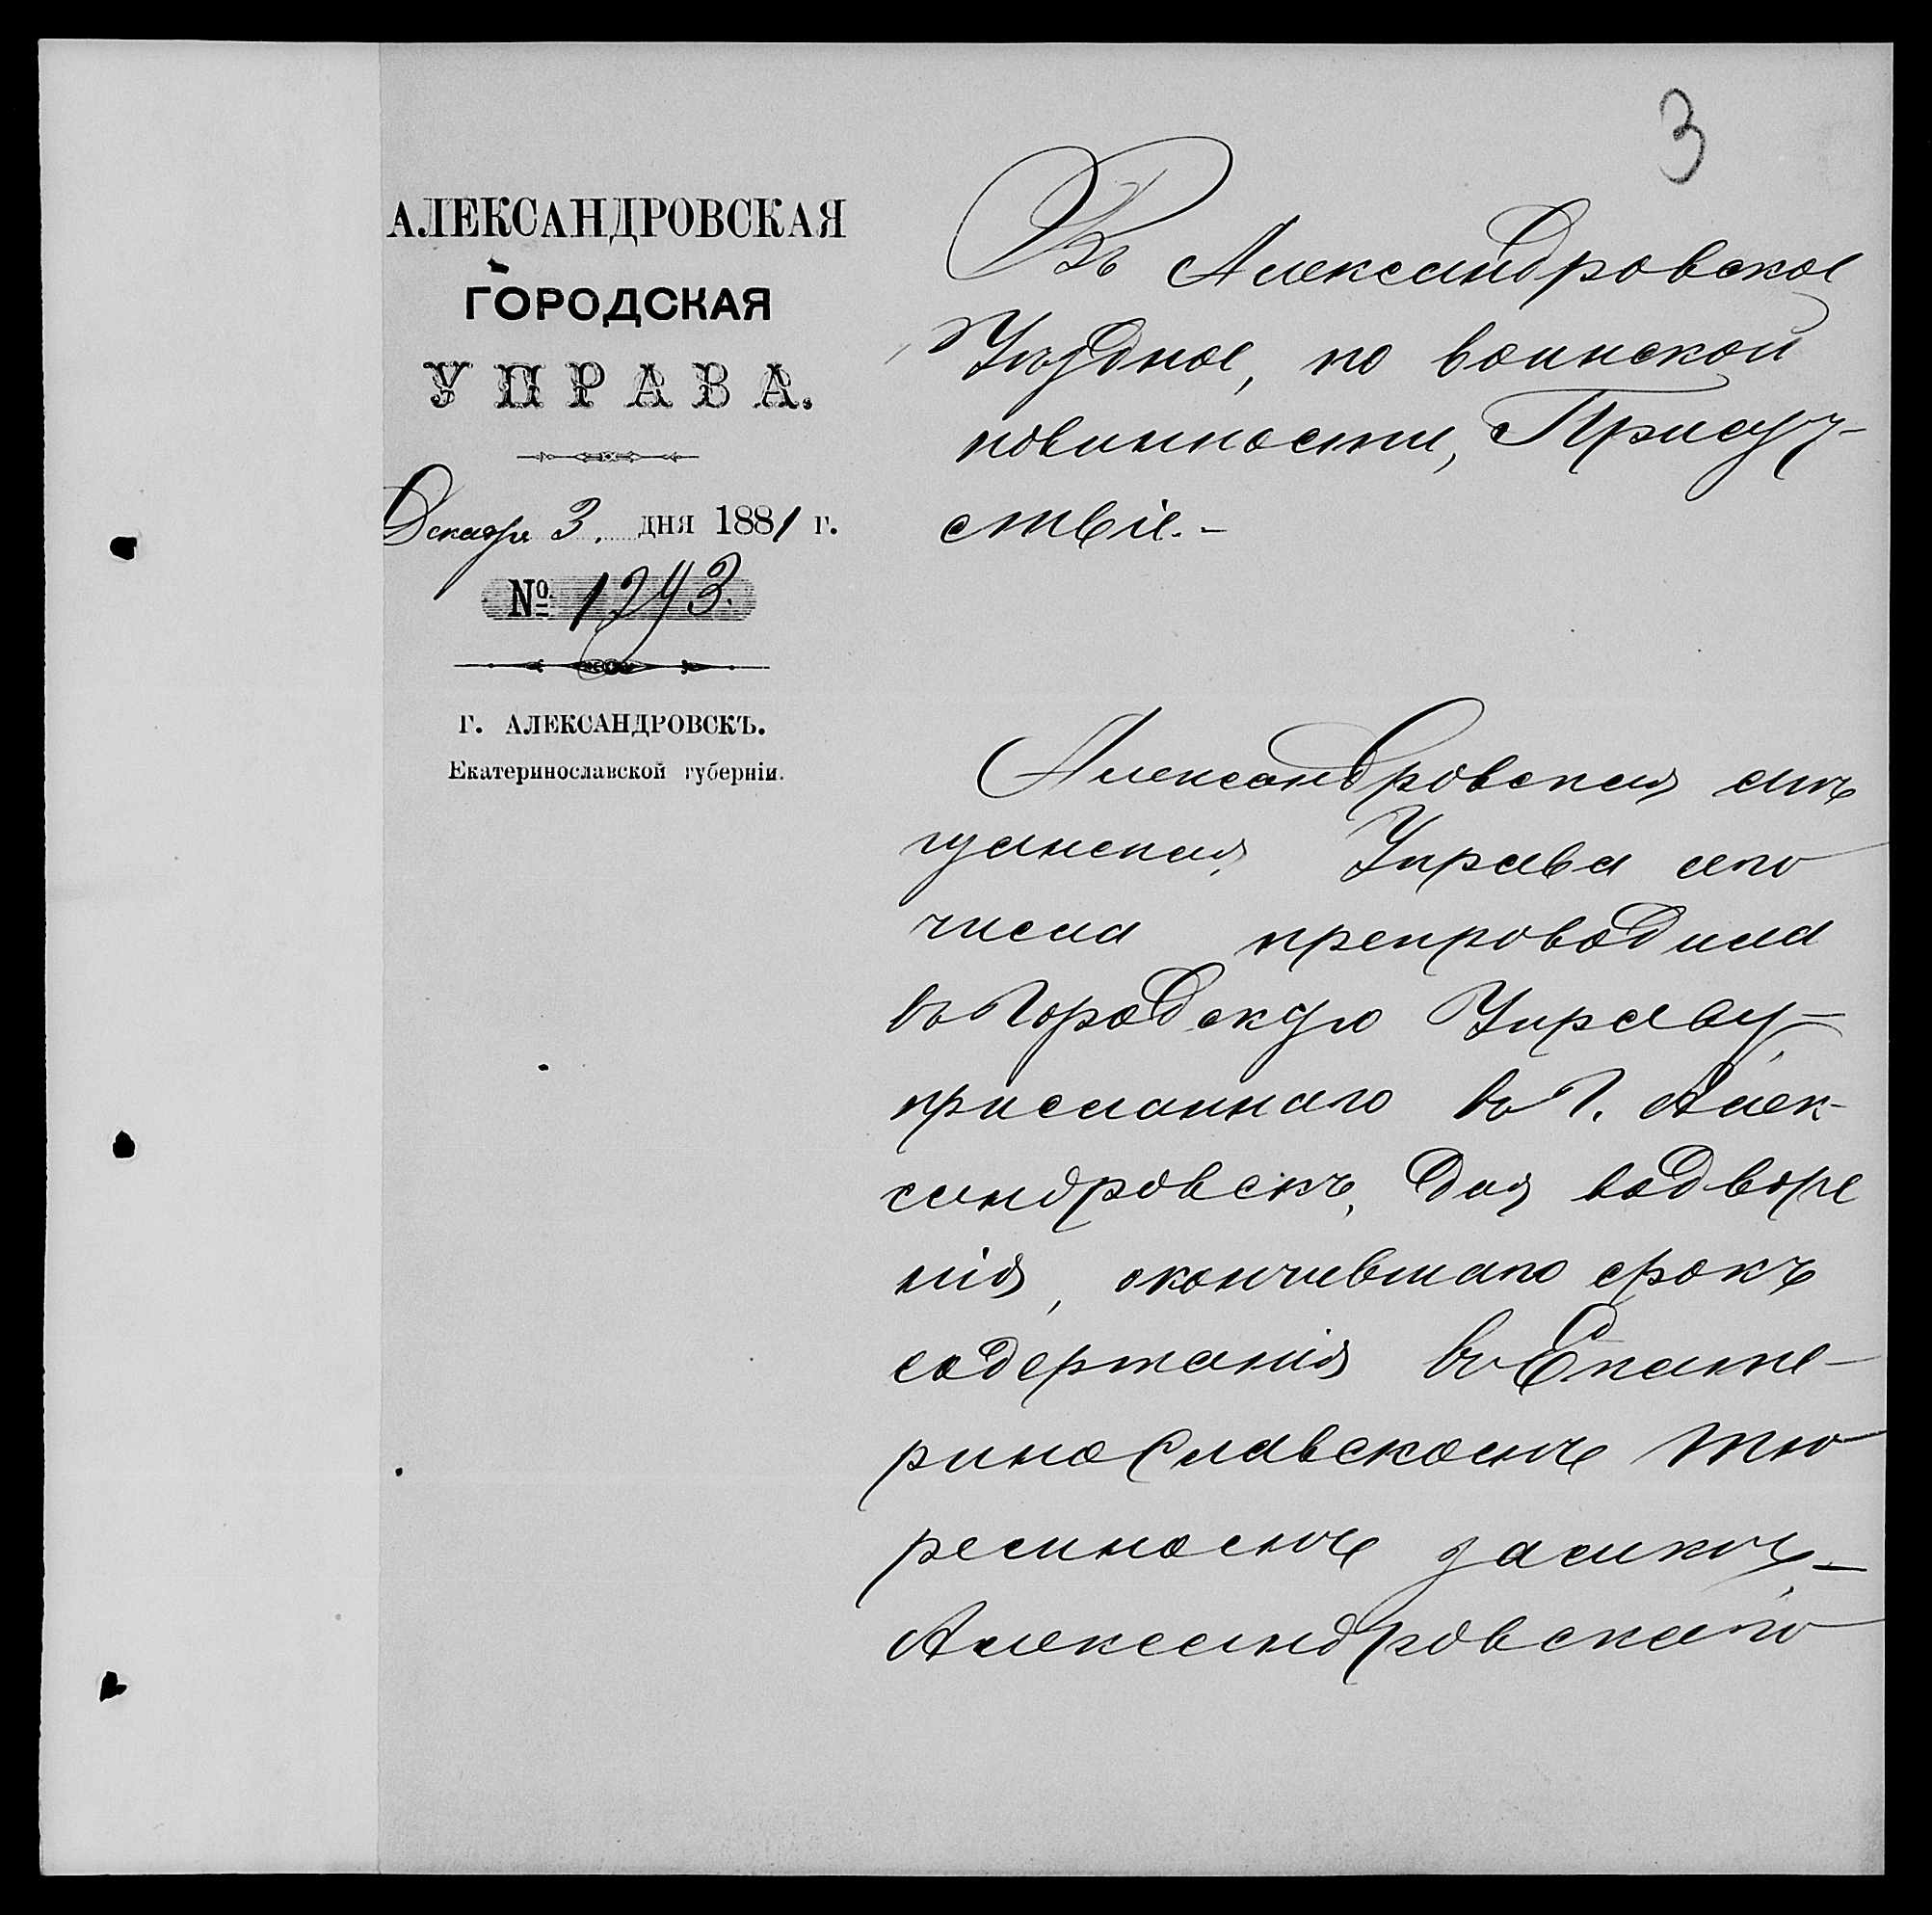 3
АЛЕКСАНДРОВСКАЯ
ГОРОДСКАЯ
УПРАВА.
Декабря 3. дня 1881 г.
№ 1293.
Г. АЛЕКСАНДРОВСКЪ.
Екатеринославской губерніи.
Въ Александровское
Уѣздное, по воинской
повинности, Присут-
ствіе.-
Александровская мѣ
щанская Управа сего
числа препроводила
въ Городскую Управу-
присланнаго въ Г. Алек-
сандровскъ, для водворе
нія, окончившаго срокъ
содержанія въ Екате-
ринославскомъ тю
ремномъ замкѣ-
Александровскаго